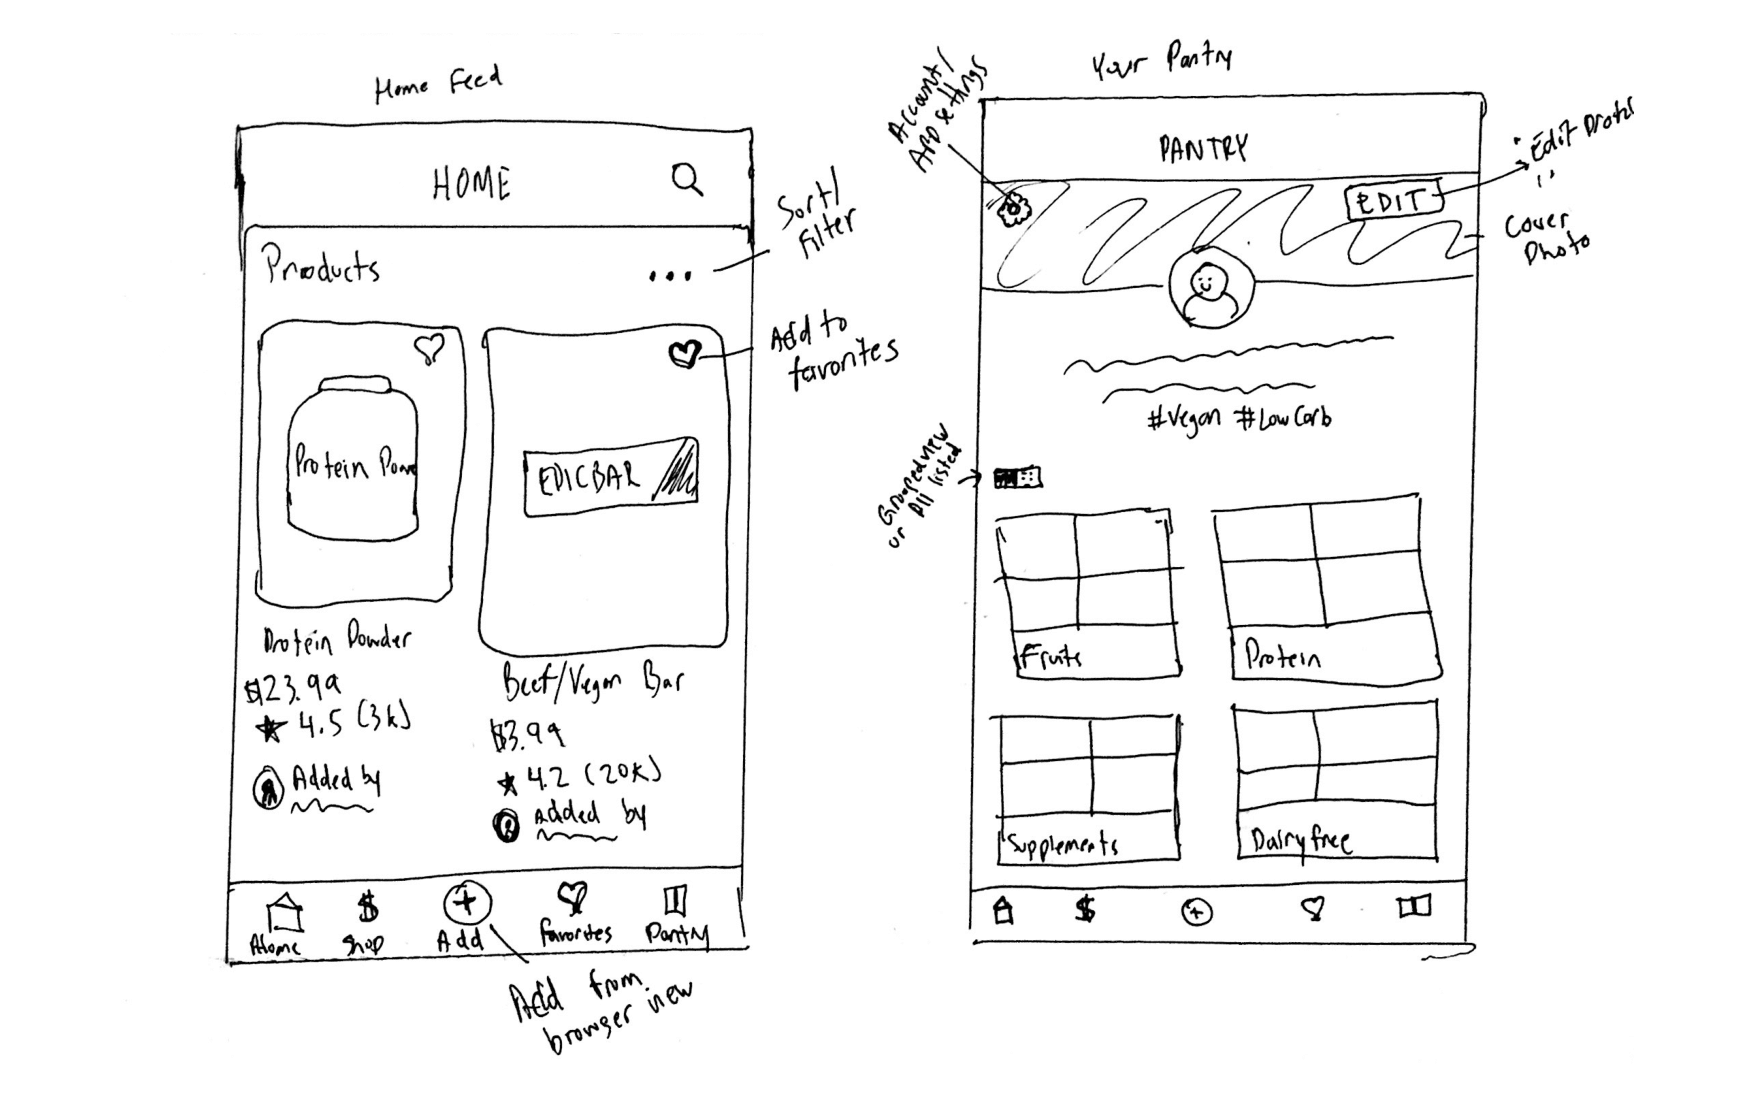 Home Feed
HOME
Products
...
Sort/
Filter
Add to
favorites
Protein Powe
EDICBAR
Protein Powder
$23.99
★ 4.5 (3k)
Added by
Beef/Vegan Bar
$3.99
★ 4.2 (20K)
Added by
Home
Shop
Add
favorites
Pantry
Add from
browser view
Your Pantry
Account/
APP settings
PANTRY
EDIT
"Edit
Cover
Photo
#Vegan #LowCarb
Grouped view
or All listed
Fruits
Protein
Supplements
Dairy free